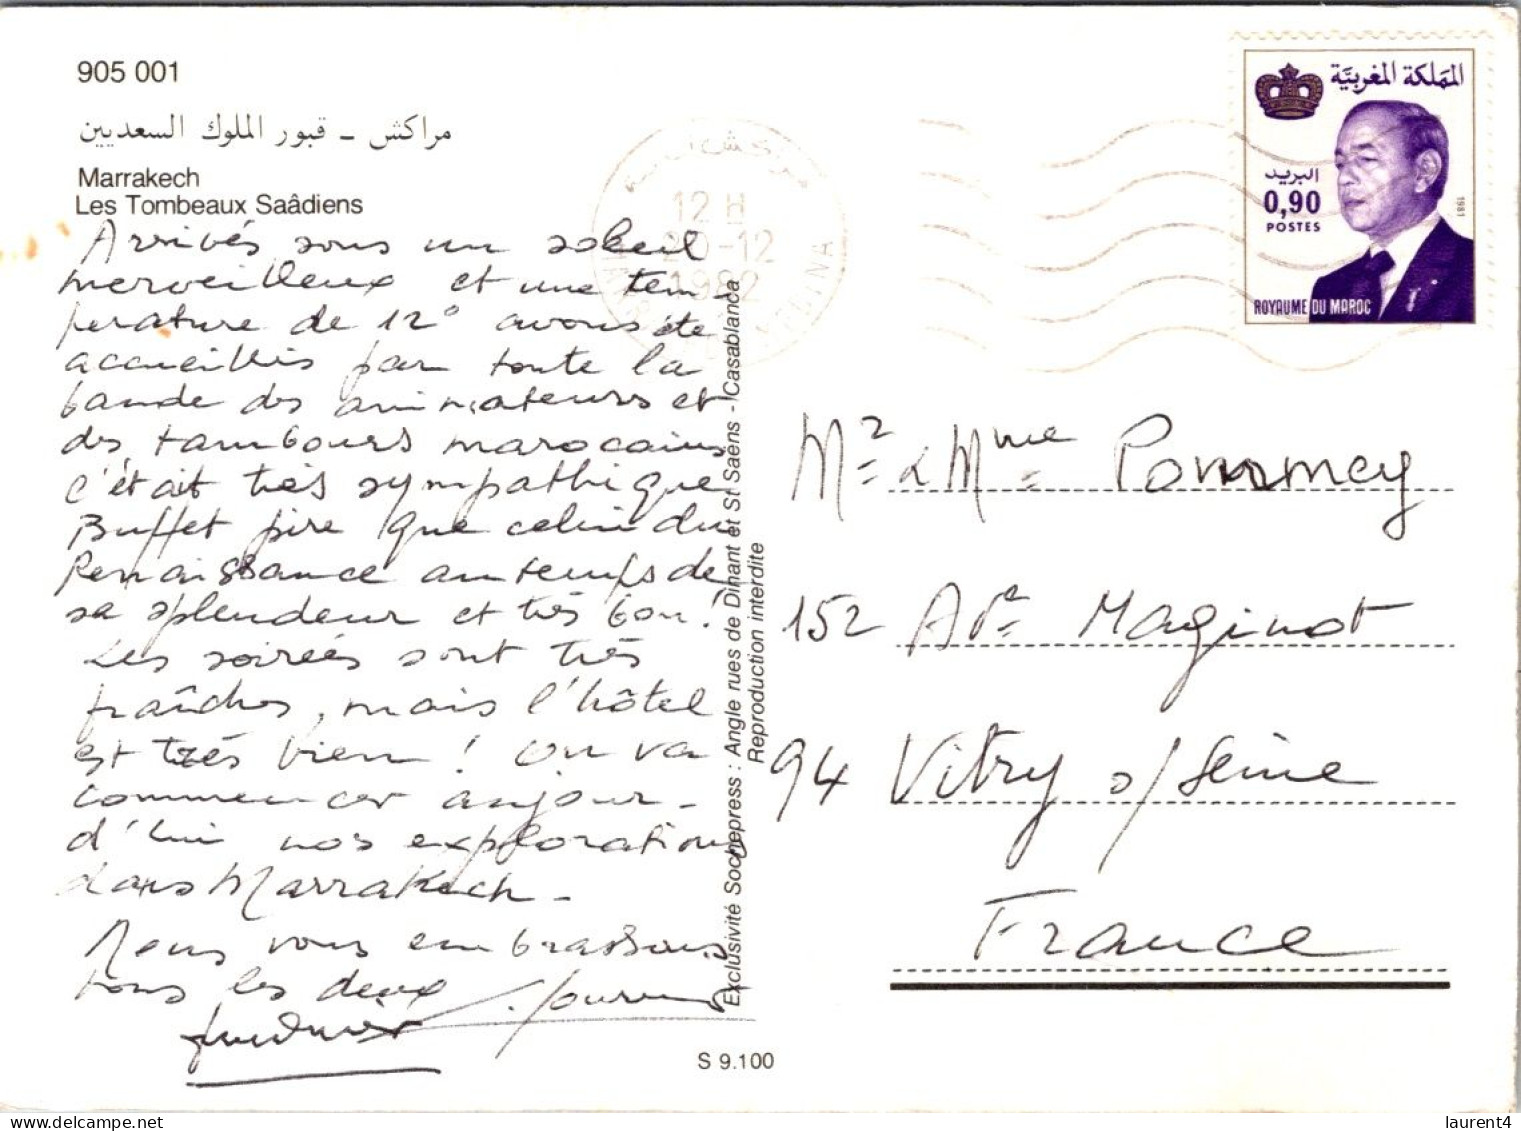 905 001
مراكش - قبور الملوك السعديين
Marrakech
Les Tombeaux Saâdiens
Arrivés sous un soleil
merveilleux et une tem-
pérature de 12° avons été
accueillis par toute la
bande des animateurs et
des tambours marocains
c'était très sympathique
Buffet pire que celui du
Renaissance au temps de
sa splendeur et très bon !
Les soirées sont très
fraîches, mais l'hôtel
est très bien ! On va
commencer aujour-
d'hui nos explorations
dans Marrakech -
Nous vous embrassons
tous les deux
S 9.100
Exclusivité Sochepress : Angle rues de Dinant et St Saëns - Casablanca
Reproduction interdite
12 H
20-12
1982
المملكة المغربية
البريد
0,90
POSTES
1981
ROYAUME DU MAROC
Mr & Mme
152 Ave Maginot
94 Vitry s/Seine
France
laurent4